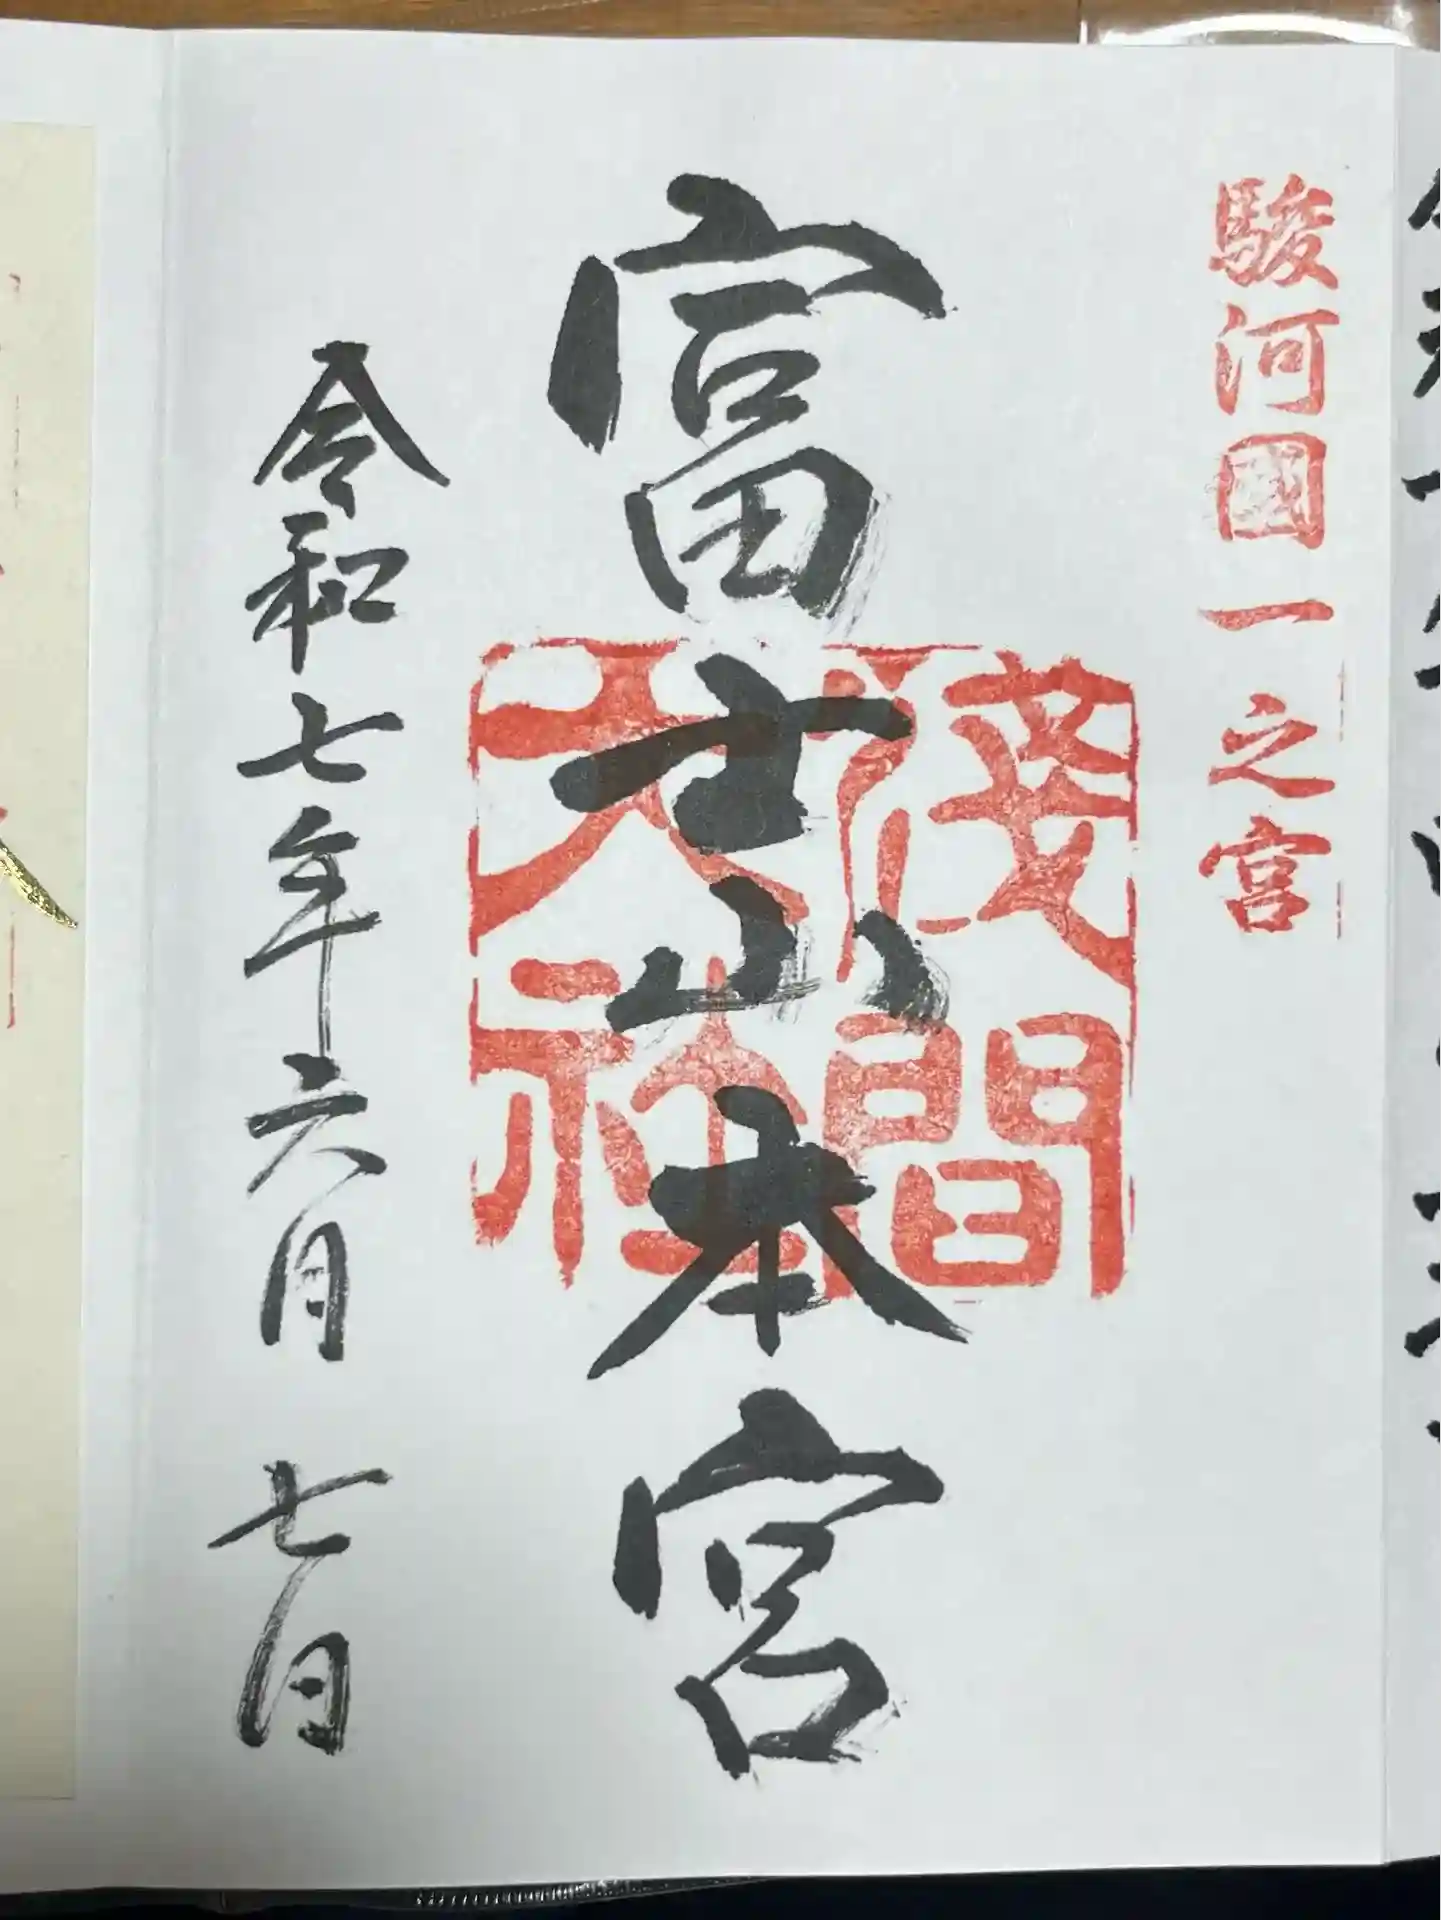 駿河國一之宮
富士山本宮
淺間大社
令和七年六月七日